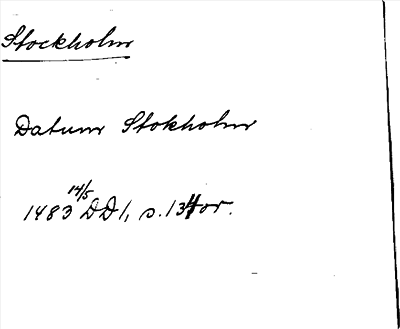 Stockholm
Datum Stokholm
1483 14/5 DD1, s. 134 or.